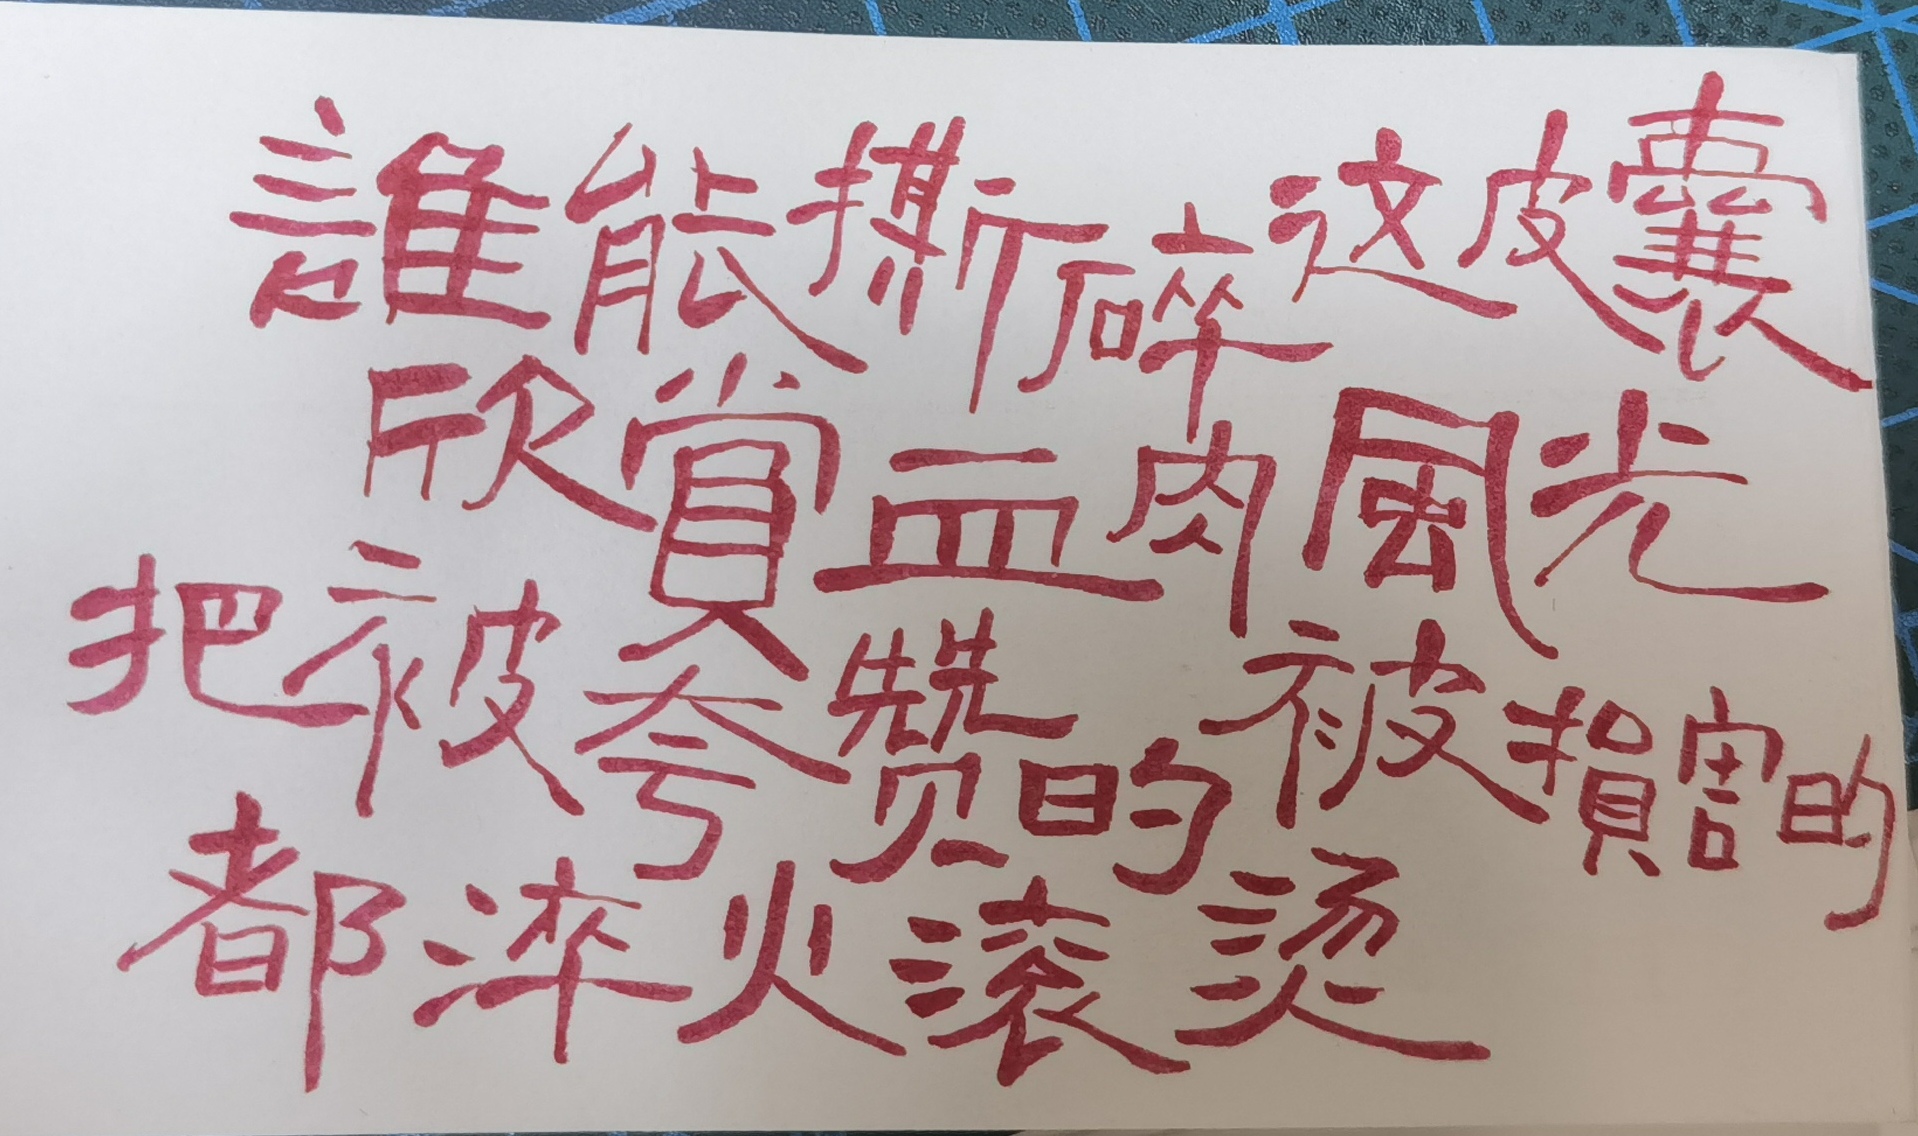 誰能撕碎这皮囊
欣賞血肉風光
把被夸赞的被損害的
都淬火滚烫